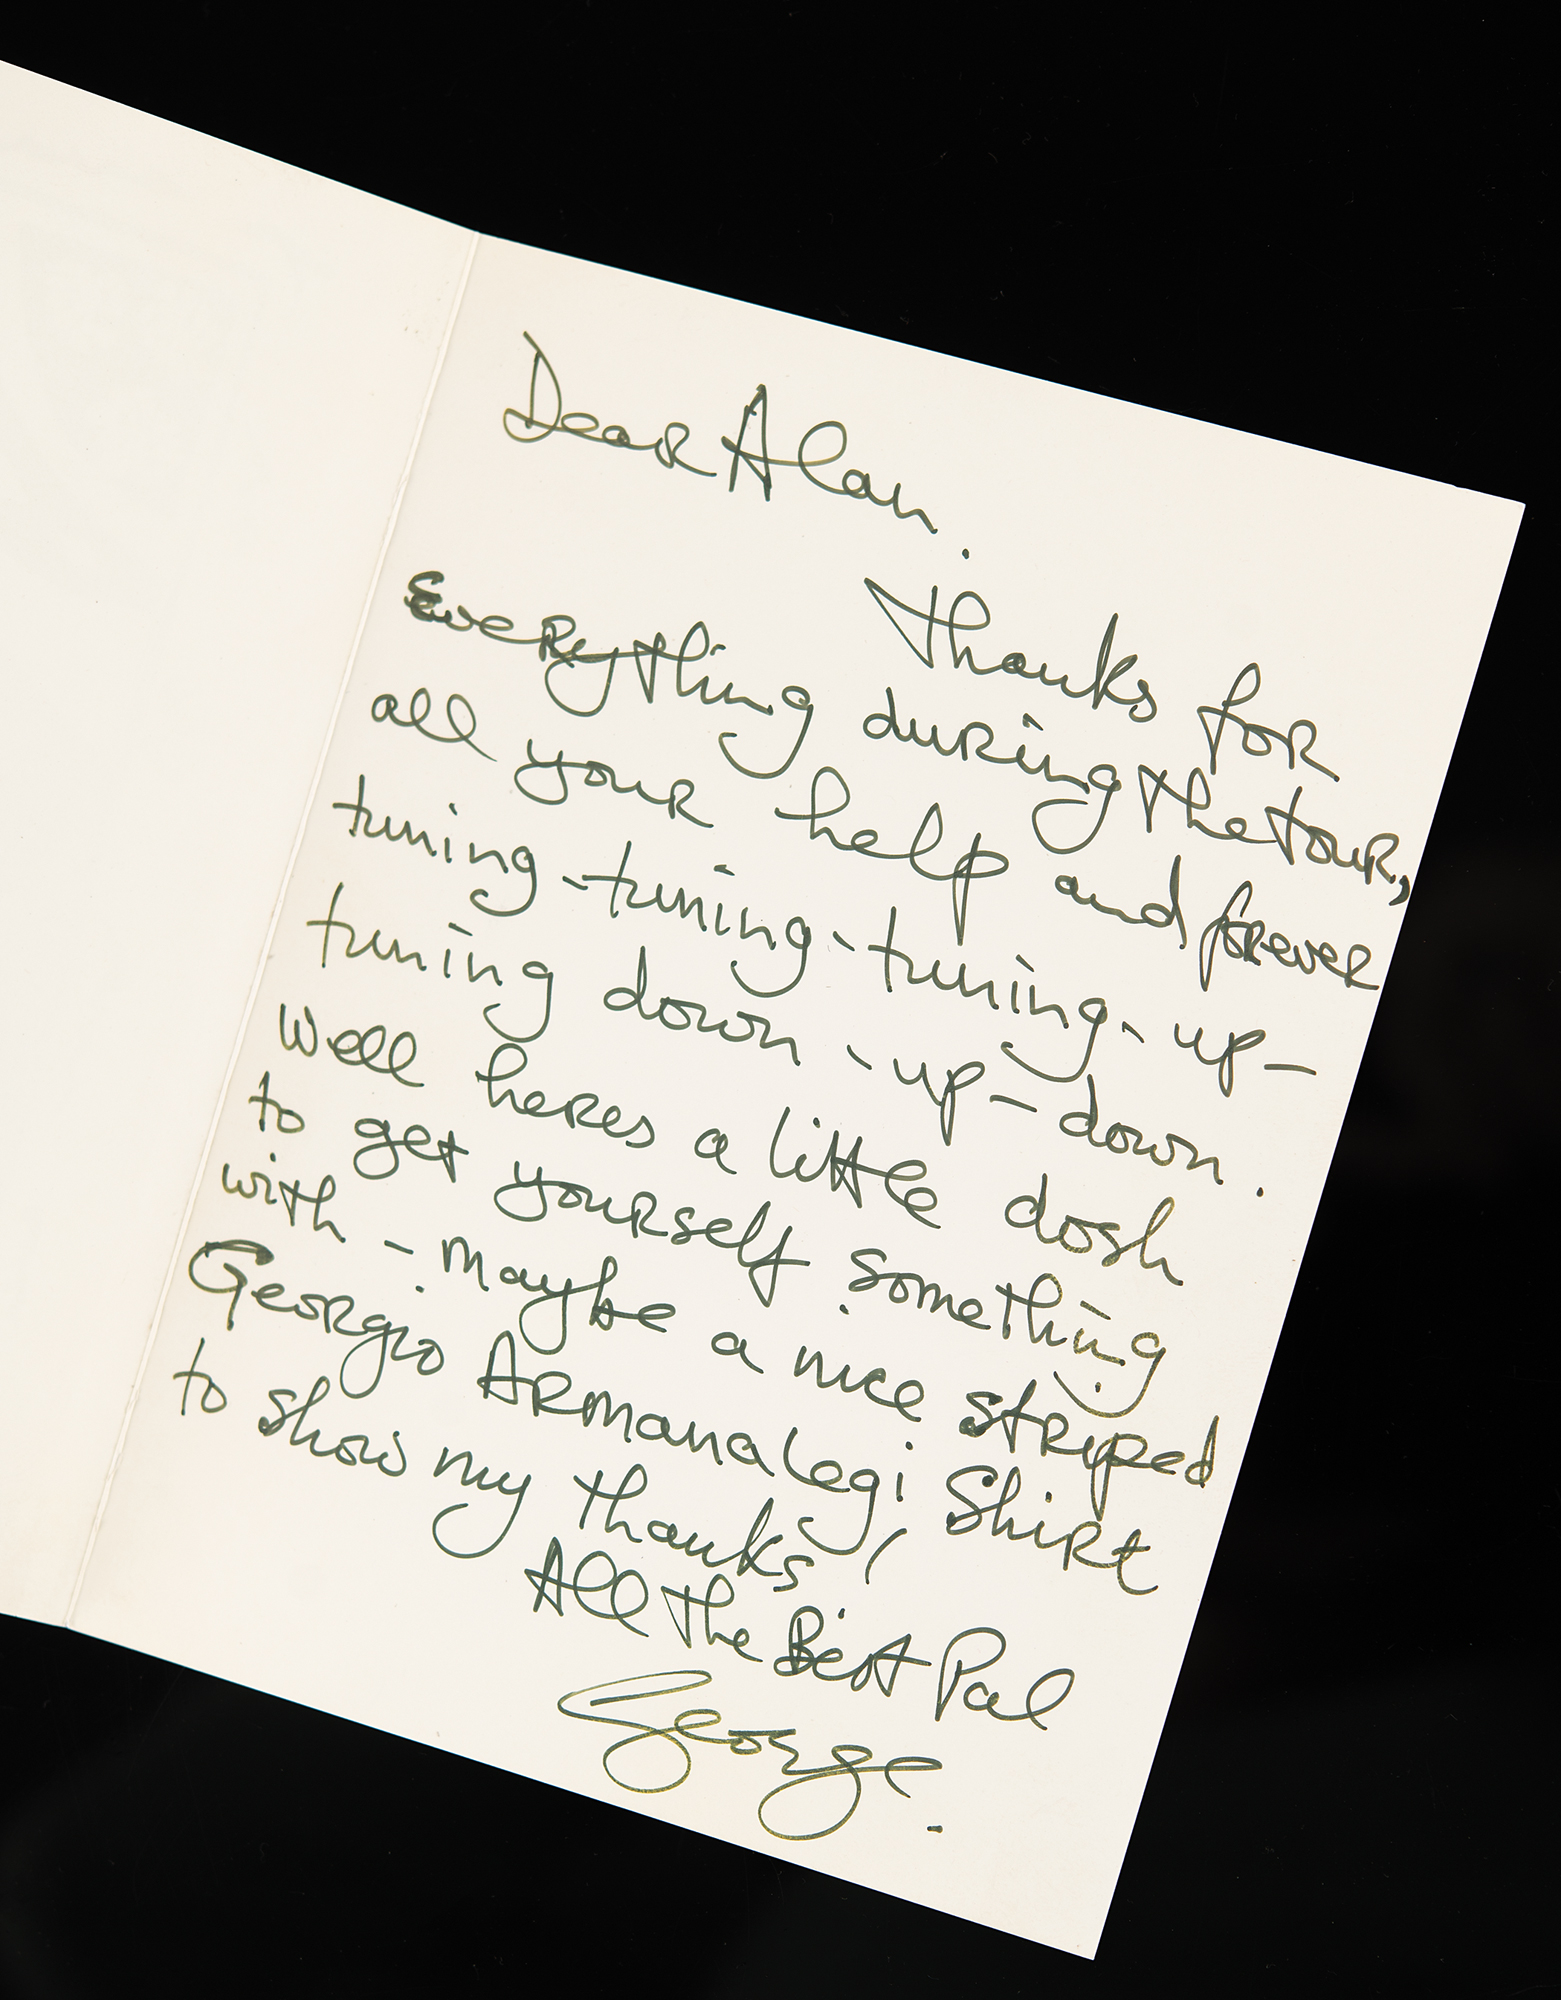 Dear Alan.
Thanks for
Everything during the tour,
all your help and forever
tuning-tuning-tuning-up-
tuning down-up-down.
Well heres a little dosh
to get yourself something
with - maybe a nice striped
Georgio Armanalegi Shirt
to show my thanks!
All the Best Pal
George.